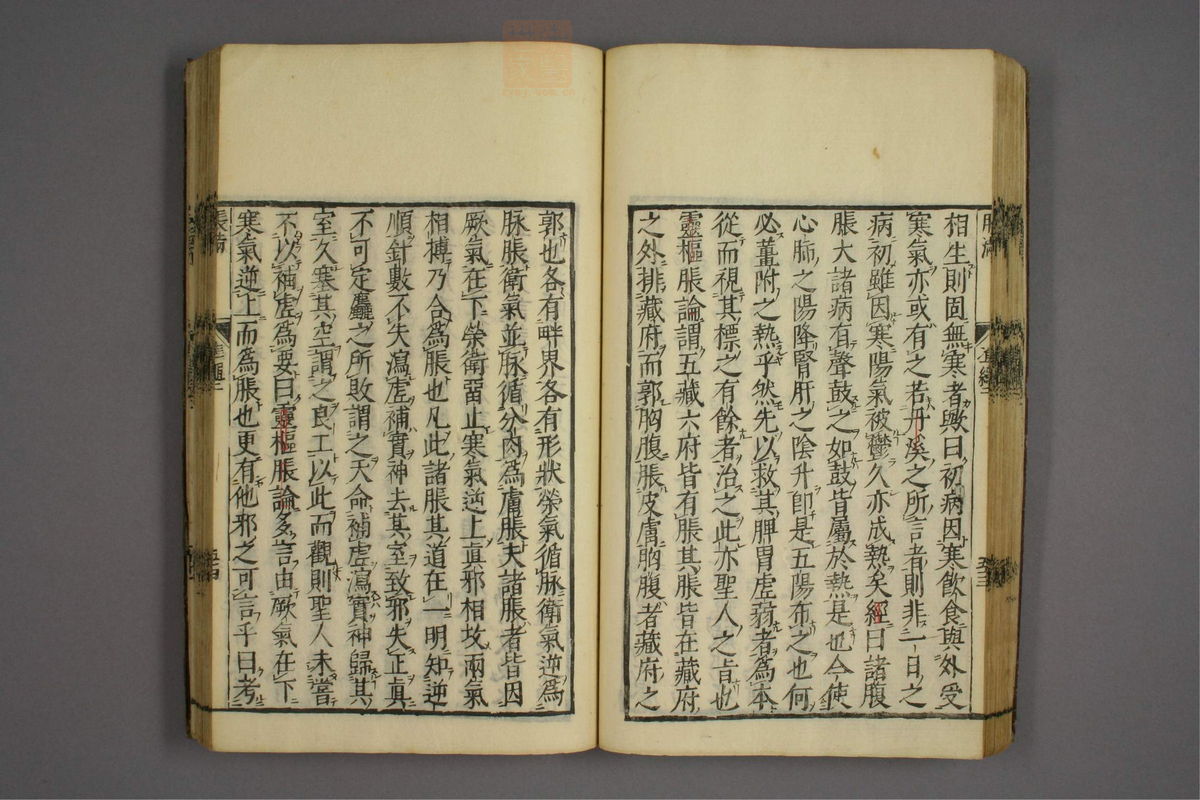 相生則固無寒者歟曰初病因寒飲食與外受
寒氣亦或有之若丹溪之所言者則非一日之
病初雖因寒陽氣被鬱久亦成熱矣經曰諸腹
脹大諸病有聲鼓之如鼓皆屬於熱是也今使
心肺之陽降腎肝之陰升卽是五陽布之也何
必薑附之熱乎然先以救其脾胃虛弱者為本
從而視其標之有餘者治之此亦聖人之旨也
靈樞脹論謂五藏六府皆有脹其脹皆在藏府
之外排藏府而郭胸腹脹皮膚胸腹者藏府之
郭也各有畔界各有形狀榮氣循脉衛氣逆為
脉脹衛氣並脉循分肉為膚脹夫諸脹者皆因
厥氣在下榮衛畱止寒氣逆上眞邪相攻兩氣
相搏乃合為脹也凡此諸脹其道在一明知逆
順針數不失瀉虛補實神去其室致邪失正眞
不可定麤之所敗謂之天命補虛瀉實神歸其
室久寒其空謂之良工以此而觀則聖人未嘗
不以補虛為要曰靈樞脹論多言由厥氣在下
寒氣逆上而為脹也更有他邪之可言乎曰考
脹滿